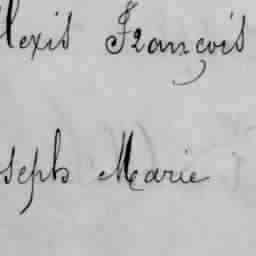 lexis François
seph Marie